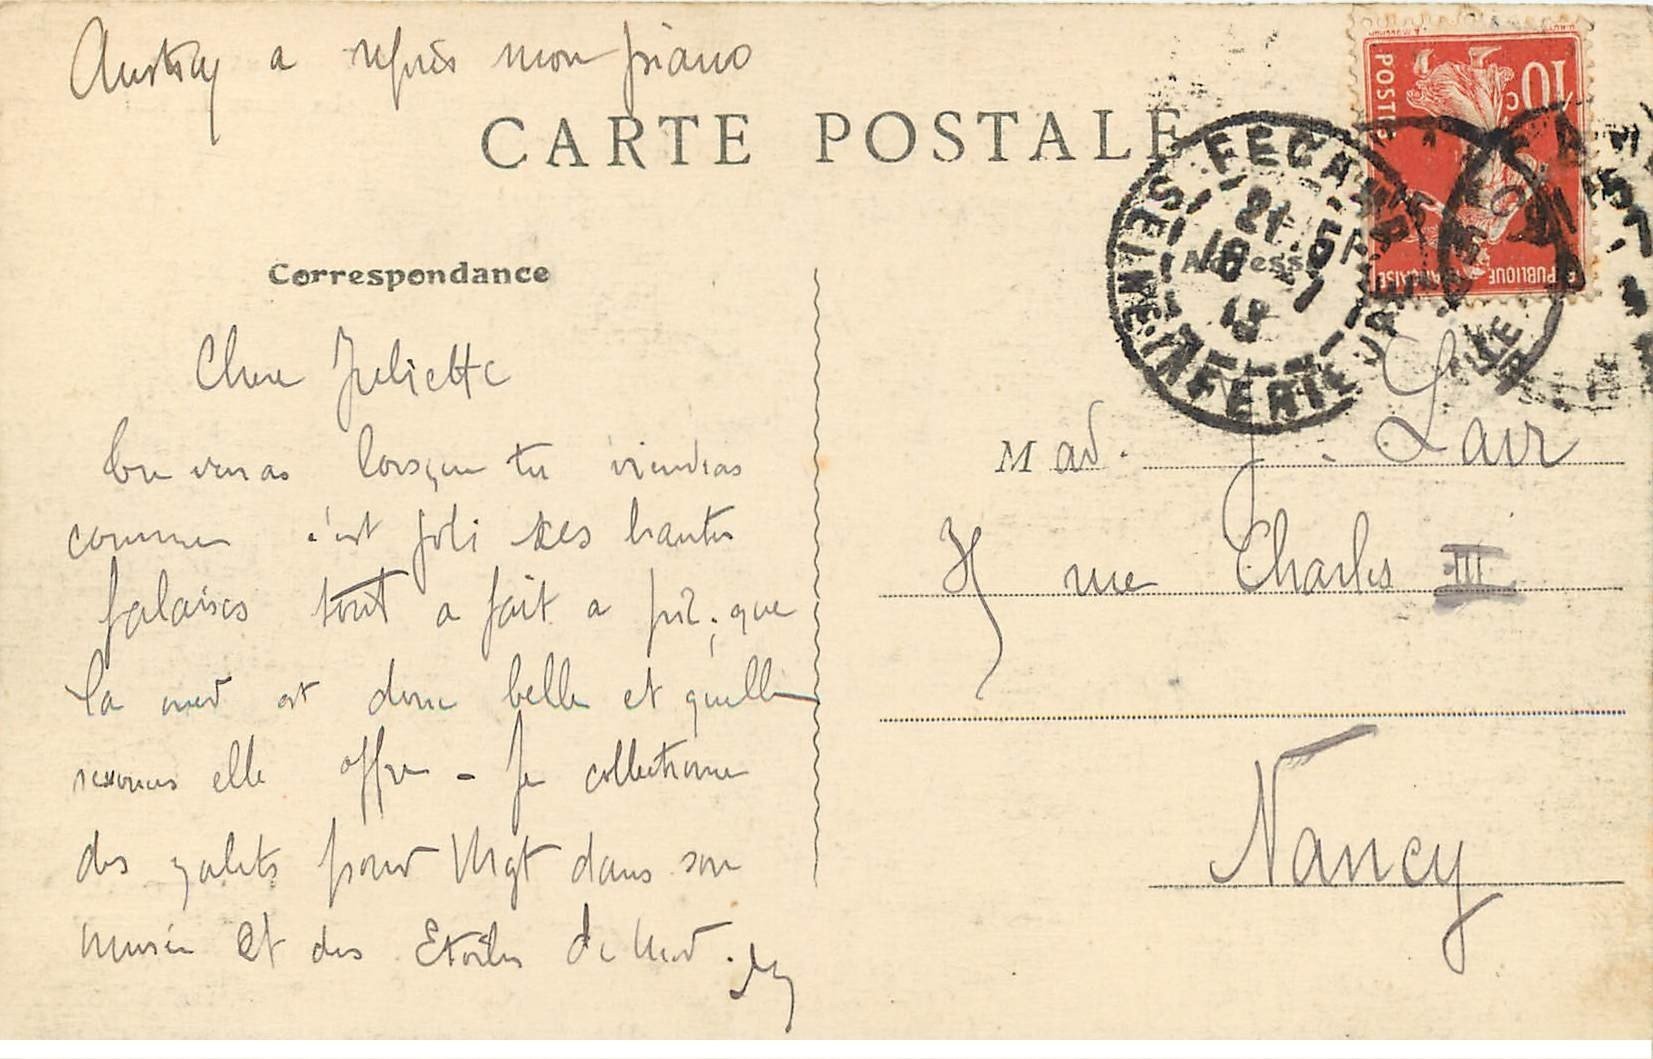 a repris mon piano
CARTE POSTALE
Correspondance
Adresse
FECAMP
SEINE-INFERIEURE
10c
POSTES
REPUBLIQUE FRANCAISE
Chere Juliette
tu verras lorsque tu viendras
comme c'est joli ces hautes
falaises tout a fait a pic, que
la mer est donc belle et quelle
elle offre - Je collectionne
des galets pour Mgt dans son
musée et des Etoiles de Mer.
M ad. J. Lair
rue Charles III
Nancy